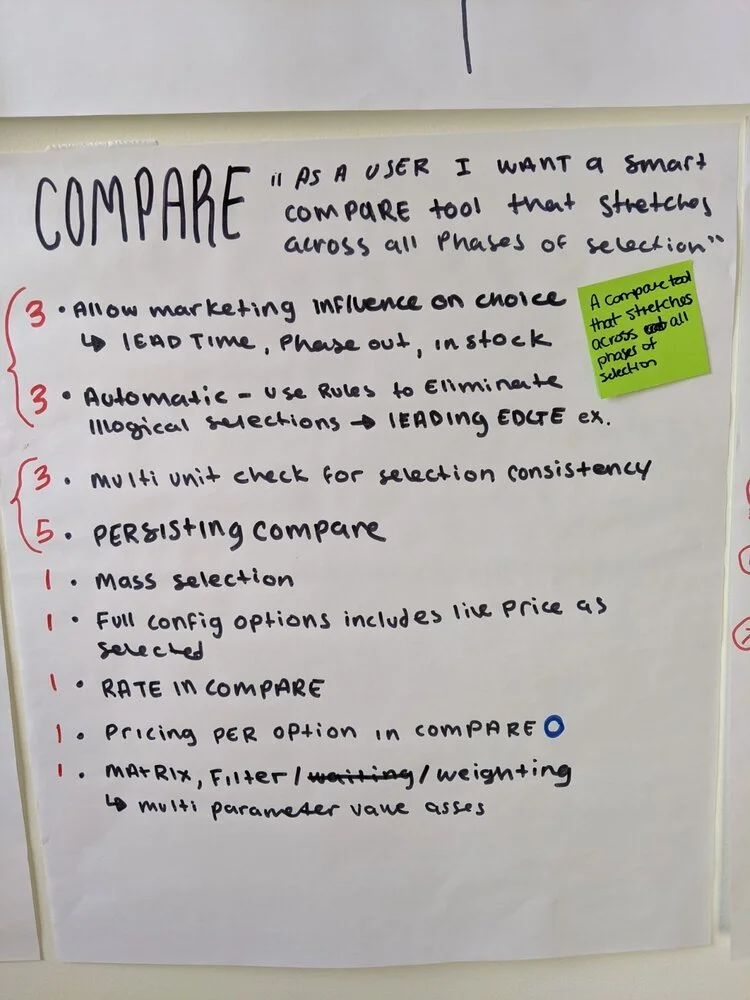 COMPARE "AS A USER I WANT a smart
COMPARE tool that stretches
across all Phases of selection"
A compare tool
that stretches
across all
phases of
selection
3 • Allow marketing influence on choice
↳ LEAD TIME, Phase out, in stock
3 • Automatic - use Rules to Eliminate
Illogical selections → LEADING EDGE ex.
3 • multi unit check for selection consistency
5 • PERSISTING COMPARE
1 • Mass selection
1 • Full config options includes live Price as
selected
1 • RATE IN COMPARE
1 • Pricing PER OPtion in COMPARE
1 • MATRIX, Filter / waiting / weighting
↳ multi parameter value asses